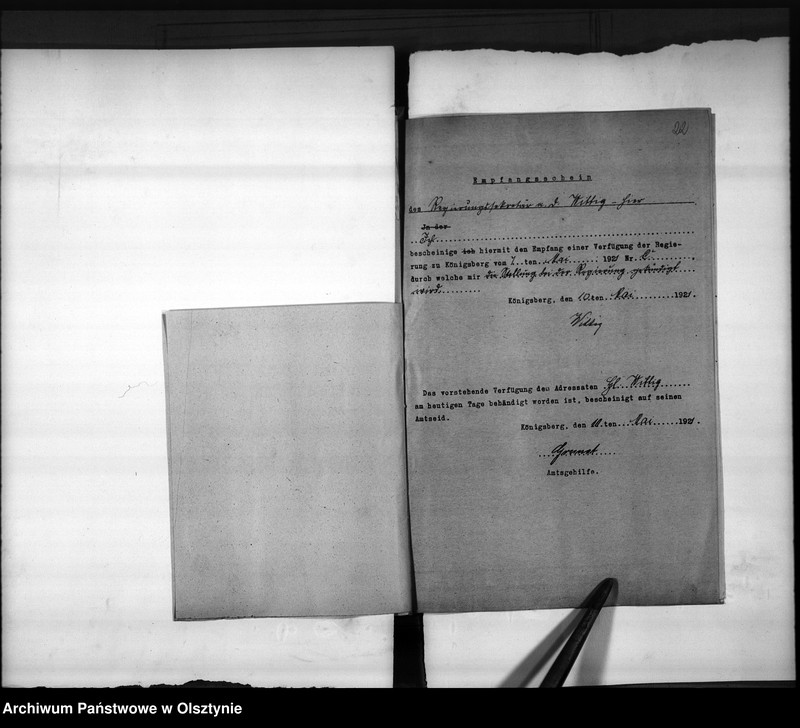 22
Empfangsschein
des Regierungssekretär a. D. Wittig - hier
Ja der
Ich
bescheinige ich hiermit den Empfang einer Verfügung der Regie-
rung zu Königsberg vom 7. ten Mai 1921 Nr.
durch welche mir die Stellung bei der Regierung gekündigt
wird
Königsberg, den 10. ten Mai 1921.
Wittig
Das vorstehende Verfügung den Adressaten Hl. Wittig
am heutigen Tage behändigt worden ist, bescheinigt auf seinen
Amtseid.
Königsberg, den 10. ten Mai 1921.
Amtsgehilfe.
Archiwum Państwowe w Olsztynie